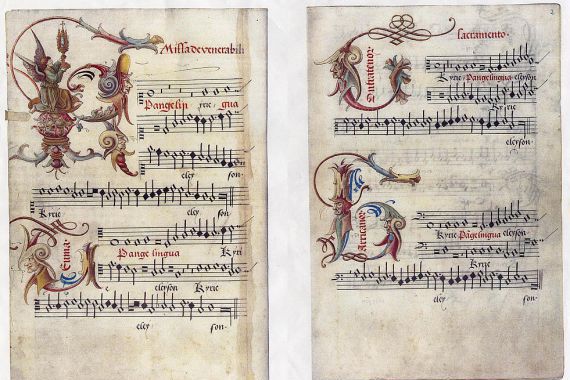 Missa de venerabili
Pangelin kyrie gua
eley son.
Kyrie eley son
Pange lingua Kyri
e eleyson Kyrie
eley son.
2
sacramento.
Contratenor
Kyrie Pange lingua eleyson
Kyrie
eleyson.
Kyrie Pãge lingua eleyson
Kyrie
eley son.